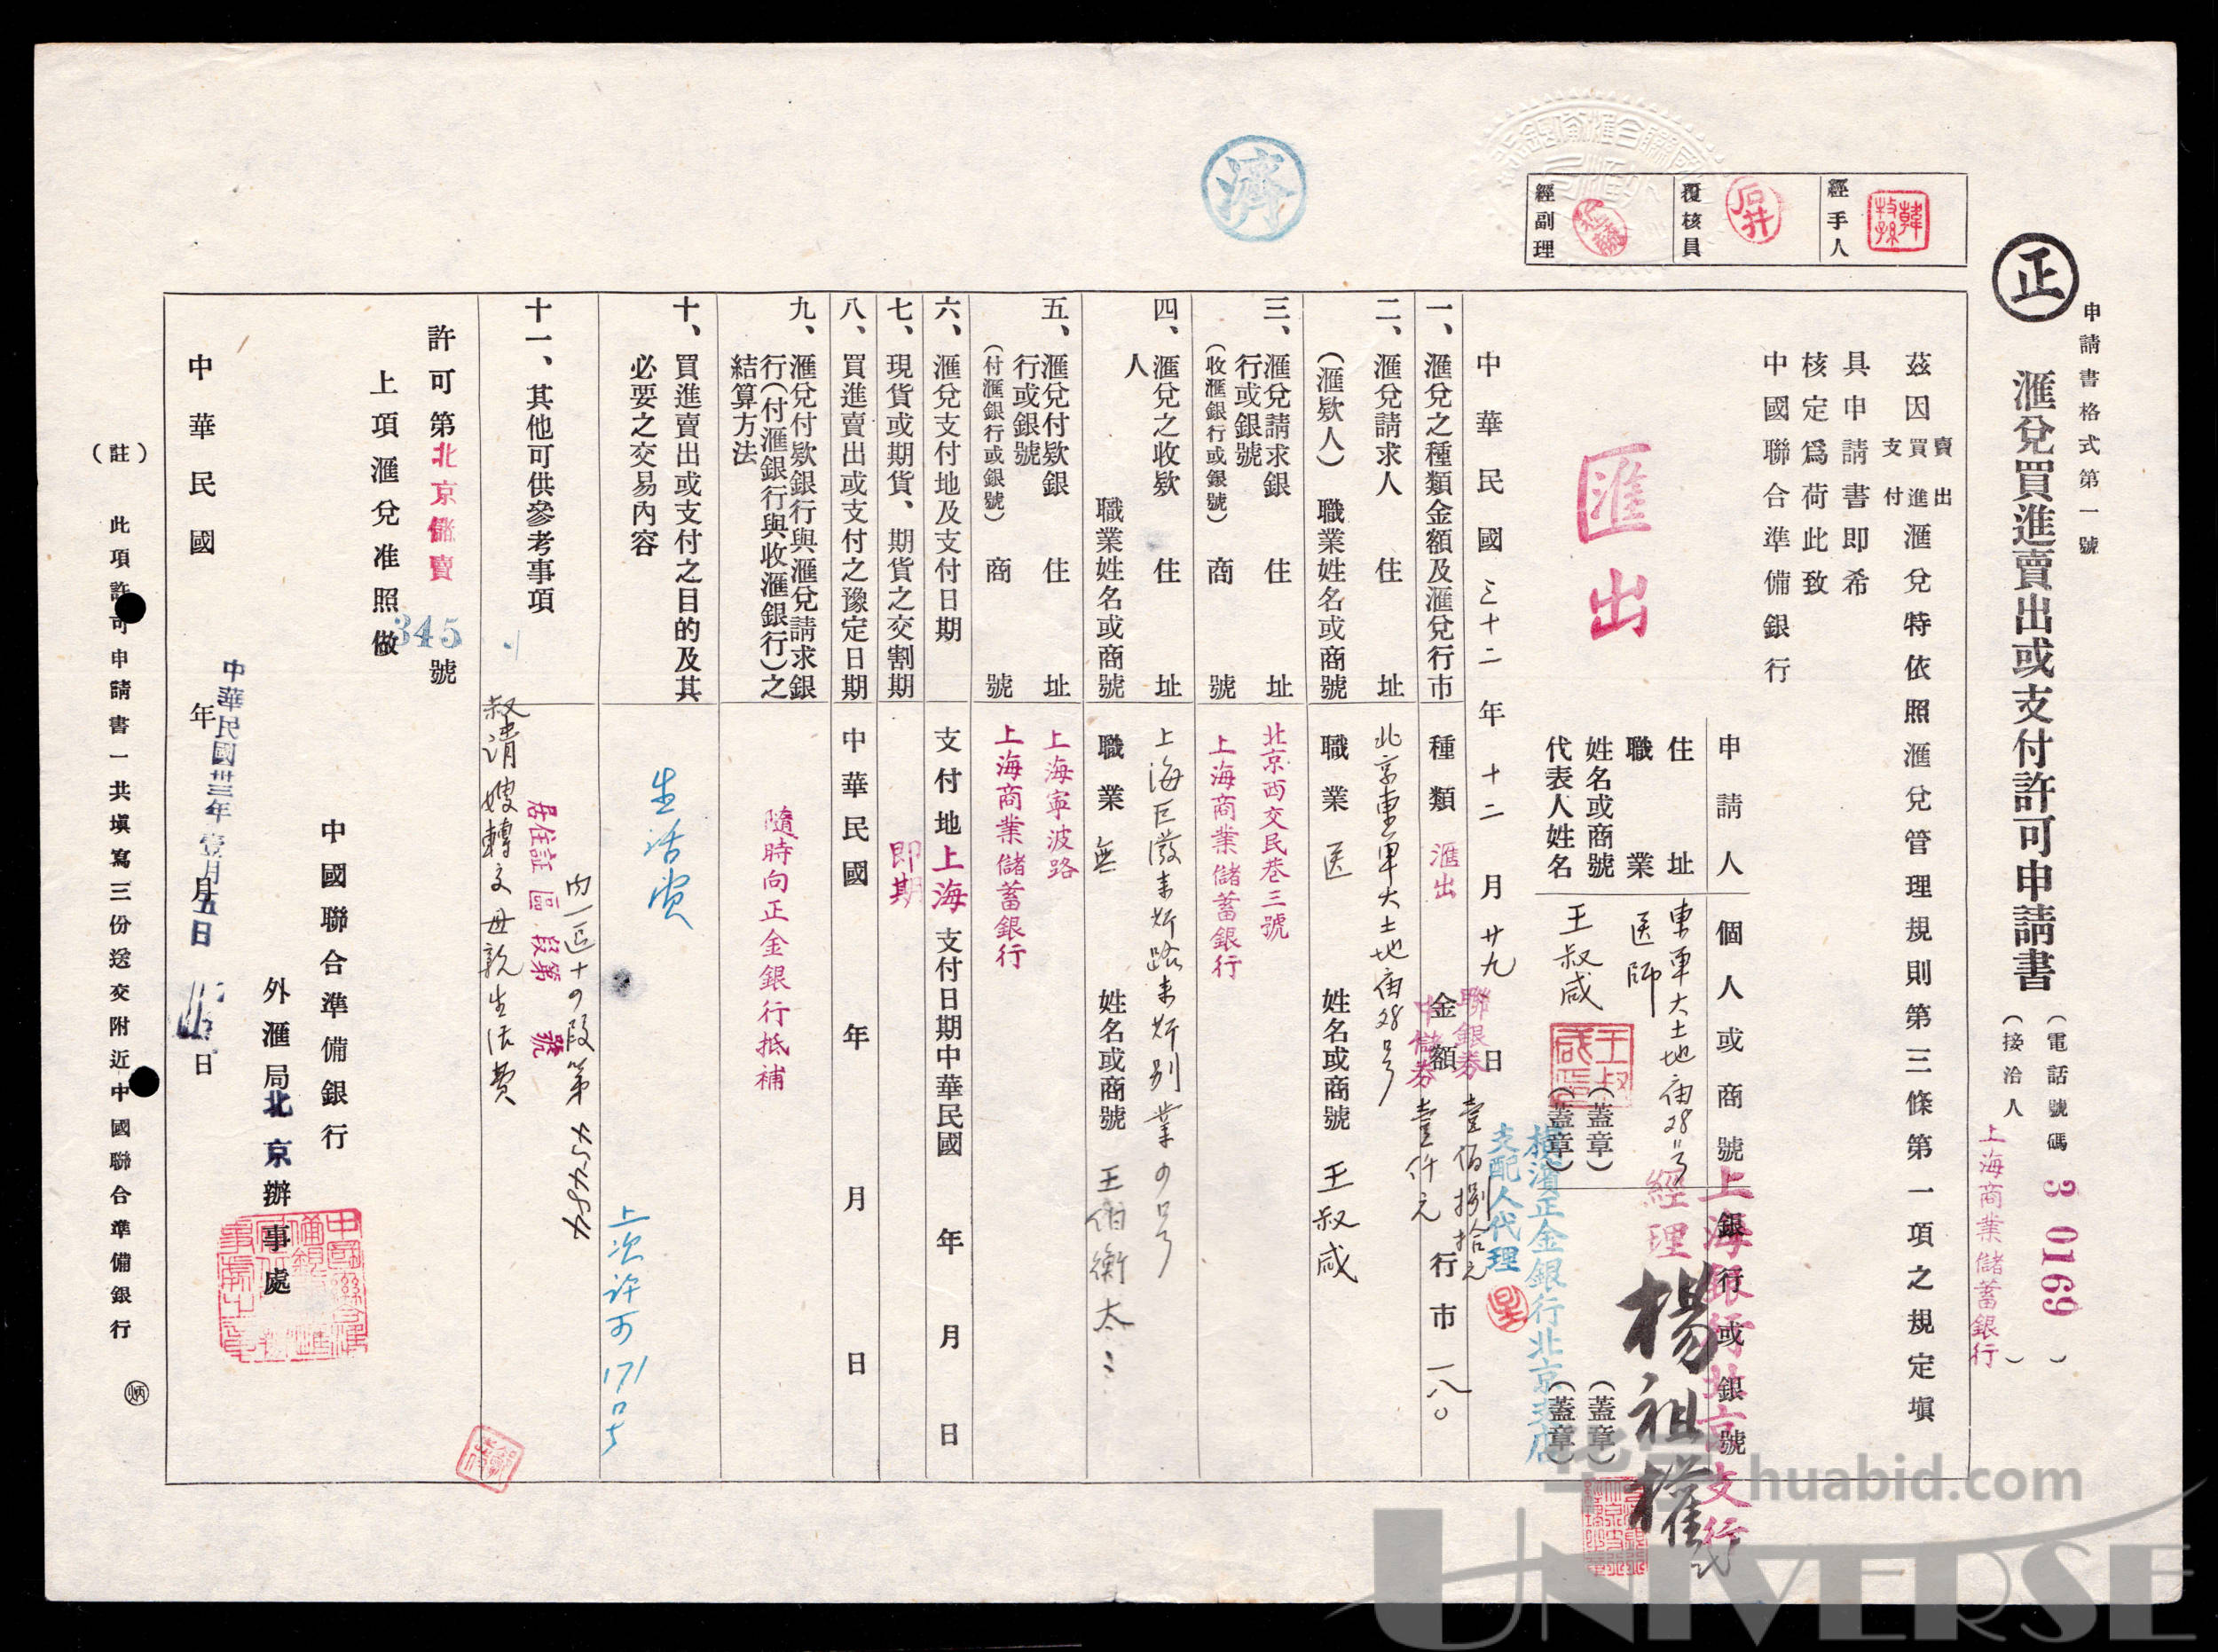 申請書格式第一號
正
滙兌買進賣出或支付許可申請書
（電話號碼 3 0169 ）
（接洽人 上海商業儲蓄銀行 ）
茲因賣出買進支付滙兌特依照滙兌管理規則第三條第一項之規定填
具申請書即希
核定爲荷此致
中國聯合準備銀行
經手人
覆核員
石井
經副理
濟
匯出
申請人
個人或商號
銀行或銀號
住址
東單大土地庙28号
職業
医師
姓名或商號
王叔咸
（蓋章）
（蓋章）
代表人姓名
（蓋章）
（蓋章）
上海銀行北京支行
經理
楊祖權
橫濱正金銀行北京支店
支配人代理
中華民國三十二年十二月廿九日
一、滙兌之種類金額及滙兌行市
種類 滙出
金額
聯銀券 壹佰捌拾元
中儲券 壹仟元
行市 一八〇
二、滙兌請求人（滙款人）
住址
北京東單大土地庙28号
職業姓名或商號
職業 医
姓名或商號 王叔咸
三、滙兌請求銀行或銀號（收滙銀行或銀號）
住址
北京西交民巷三號
商號
上海商業儲蓄銀行
四、滙兌之收款人
住址
上海巨潑來斯路來斯別業の号
職業姓名或商號
職業 無
姓名或商號 王伯衡太
五、滙兌付款銀行或銀號（付滙銀行或銀號）
住址
上海寧波路
商號
上海商業儲蓄銀行
六、滙兌支付地及支付日期
支付地 上海 支付日期中華民國 年 月 日
七、現貨或期貨、期貨之交割期
即期
八、買進賣出或支付之豫定日期
中華民國 年 月 日
九、滙兌付款銀行與滙兌請求銀行（付滙銀行與收滙銀行）之結算方法
隨時向正金銀行抵補
十、買進賣出或支付之目的及其必要之交易內容
生活費
上次许可171号
十一、其他可供參考事項
內一區十の段第
居住証 區 段第 號
叔請嫂轉交母親生活費
許可第北京儲賣 345 號
上項滙兌准照做
中國聯合準備銀行
外滙局北京辦事處
中華民國 年 月 日
中華民國卅三年壹月五日
（註） 此項許可申請書一共填寫三份送交附近中國聯合準備銀行
華宇 huabid.com
UNIVERSE